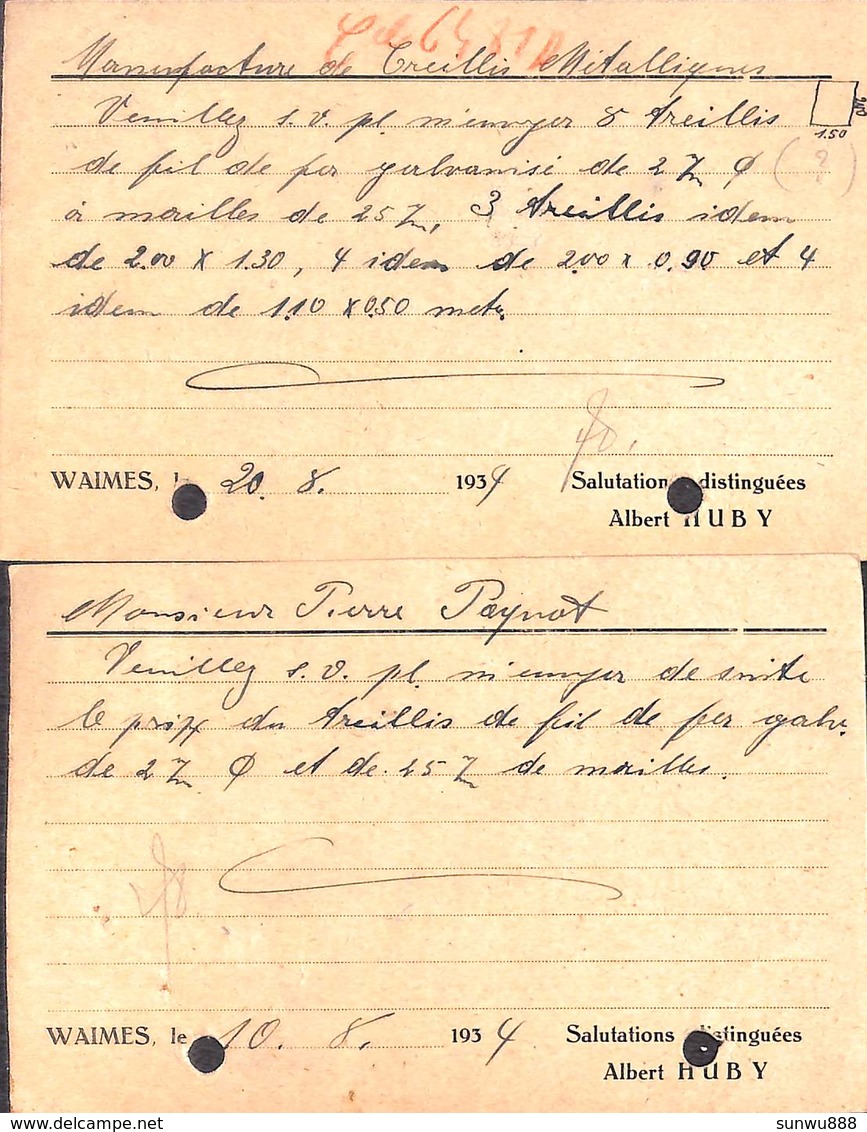 Manufacture de Treillis Métalliques
Veuillez s. v. pl. m'envoyer 8 treillis
1.50
de fil de fer galvanisé de 2 7m Ø ( ? )
à mailles de 25 7m, 3 treillis idem
de 2.00 X 1.30, 4 idem de 2.00 x 0.90 et 4
idem de 1.10 x 0.50 metr.
WAIMES, l 20. 8. 1934 Salutation distinguées
Albert HUBY
Monsieur Pierre Paynot
Veuillez s. v. pl. m'envoyer de suite
le prix du treillis de fil de fer galv.
de 2 7m Ø et de 25 7m de mailles.
WAIMES, le 10. 8. 1934 Salutations distinguées
Albert HUBY
sunwu888